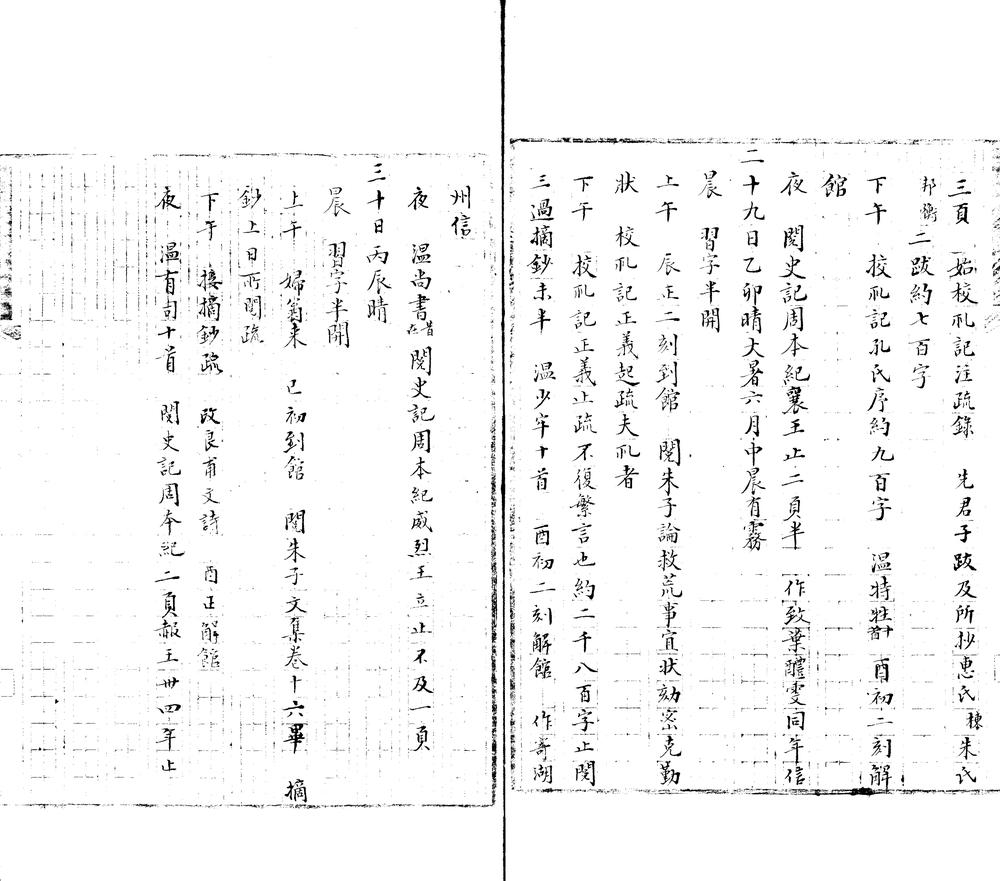 三頁　始校礼記注疏錄　先君子跋及所抄惠氏棟朱氏
邦衡二跋約七百字
下午　校礼記孔氏序約九百字　溫特牲十首　酉初二刻解
館
夜　閱史記周本紀襄王止二頁半　作致葉醴雯同年信
二十九日乙卯晴大暑六月中晨有霧
晨　習字半開
上午　辰正二刻到館　閱朱子論救荒事宜狀劾密克勤
狀　校礼記正義起疏夫礼者
下午　校礼記正義止疏不復繁言也約二千八百字止閱
三過摘鈔未半　溫少牢十首　酉初二刻解館　作寄湖
州信
夜　溫尚書　閱史記周本紀威烈王立止不及一頁
三十日丙辰晴
晨　習字半開
上午　婦翁来　巳初到館　閱朱子文集卷十六畢　摘
鈔上日所閱疏
下午　接摘鈔疏　改良甫文詩　酉正解館
夜　溫有司十首　閱史記周本紀二頁赧王卅四年止